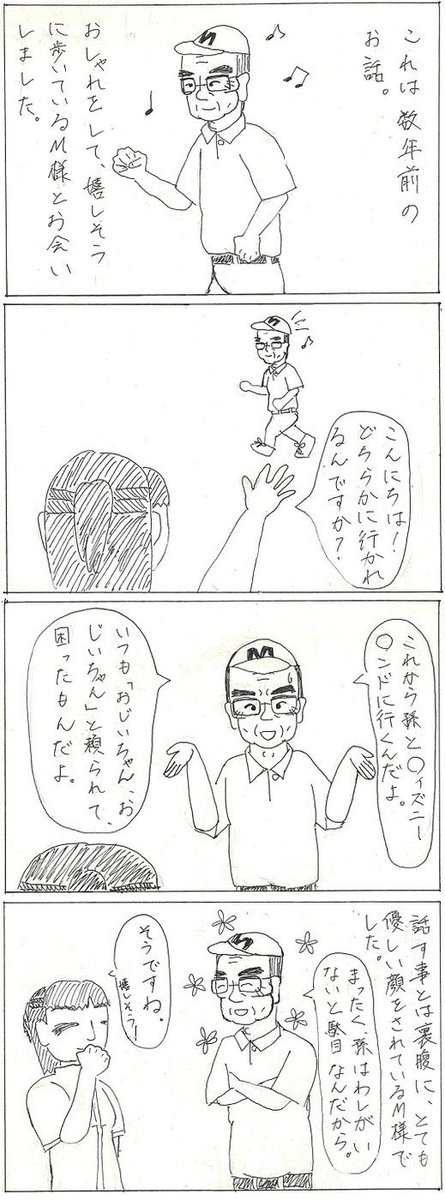 これは数年前の
お話。
おしゃれをして、嬉しそう
に歩いているM様とお会い
しました。
こんにちは!
どちらかに行かれ
るんですか?
これから孫と〇ィズニー
〇ンドに行くんだよ。
いつも「おじいちゃん、お
じいちゃん」と頼られて、
困ったもんだよ。
話す事とは裏腹に、とても
優しい顔をされているM様で
した。
まったく、孫はわしがい
ないと駄目なんだから。
そうですね。
嬉しそう!